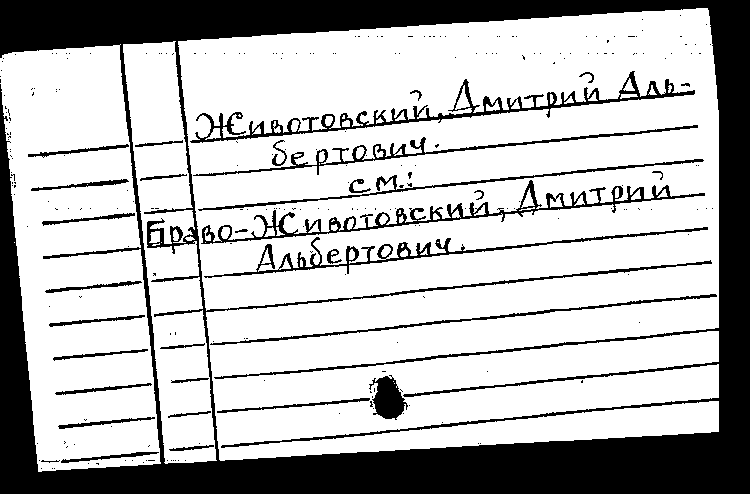 Животовский, Дмитрий Аль-
бертович.
см.:
Браво-Животовский, Дмитрий
Альбертович.